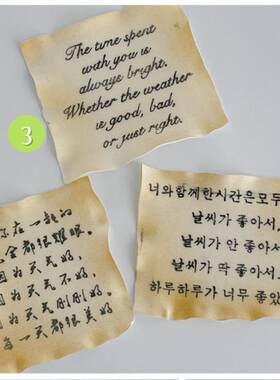 The time spent
with you is
always bright.
Whether the weather
is good, bad,
or just right.
3
你在一起的
全都很耀眼。
因为天气好,
因为天气不好,
因为天气刚刚好。
每一天都很美好。
너와함께한시간은모두
날씨가 좋아서,
날씨가 안 좋아서
날씨가 딱 좋아서.
하루하루가 너무 좋았